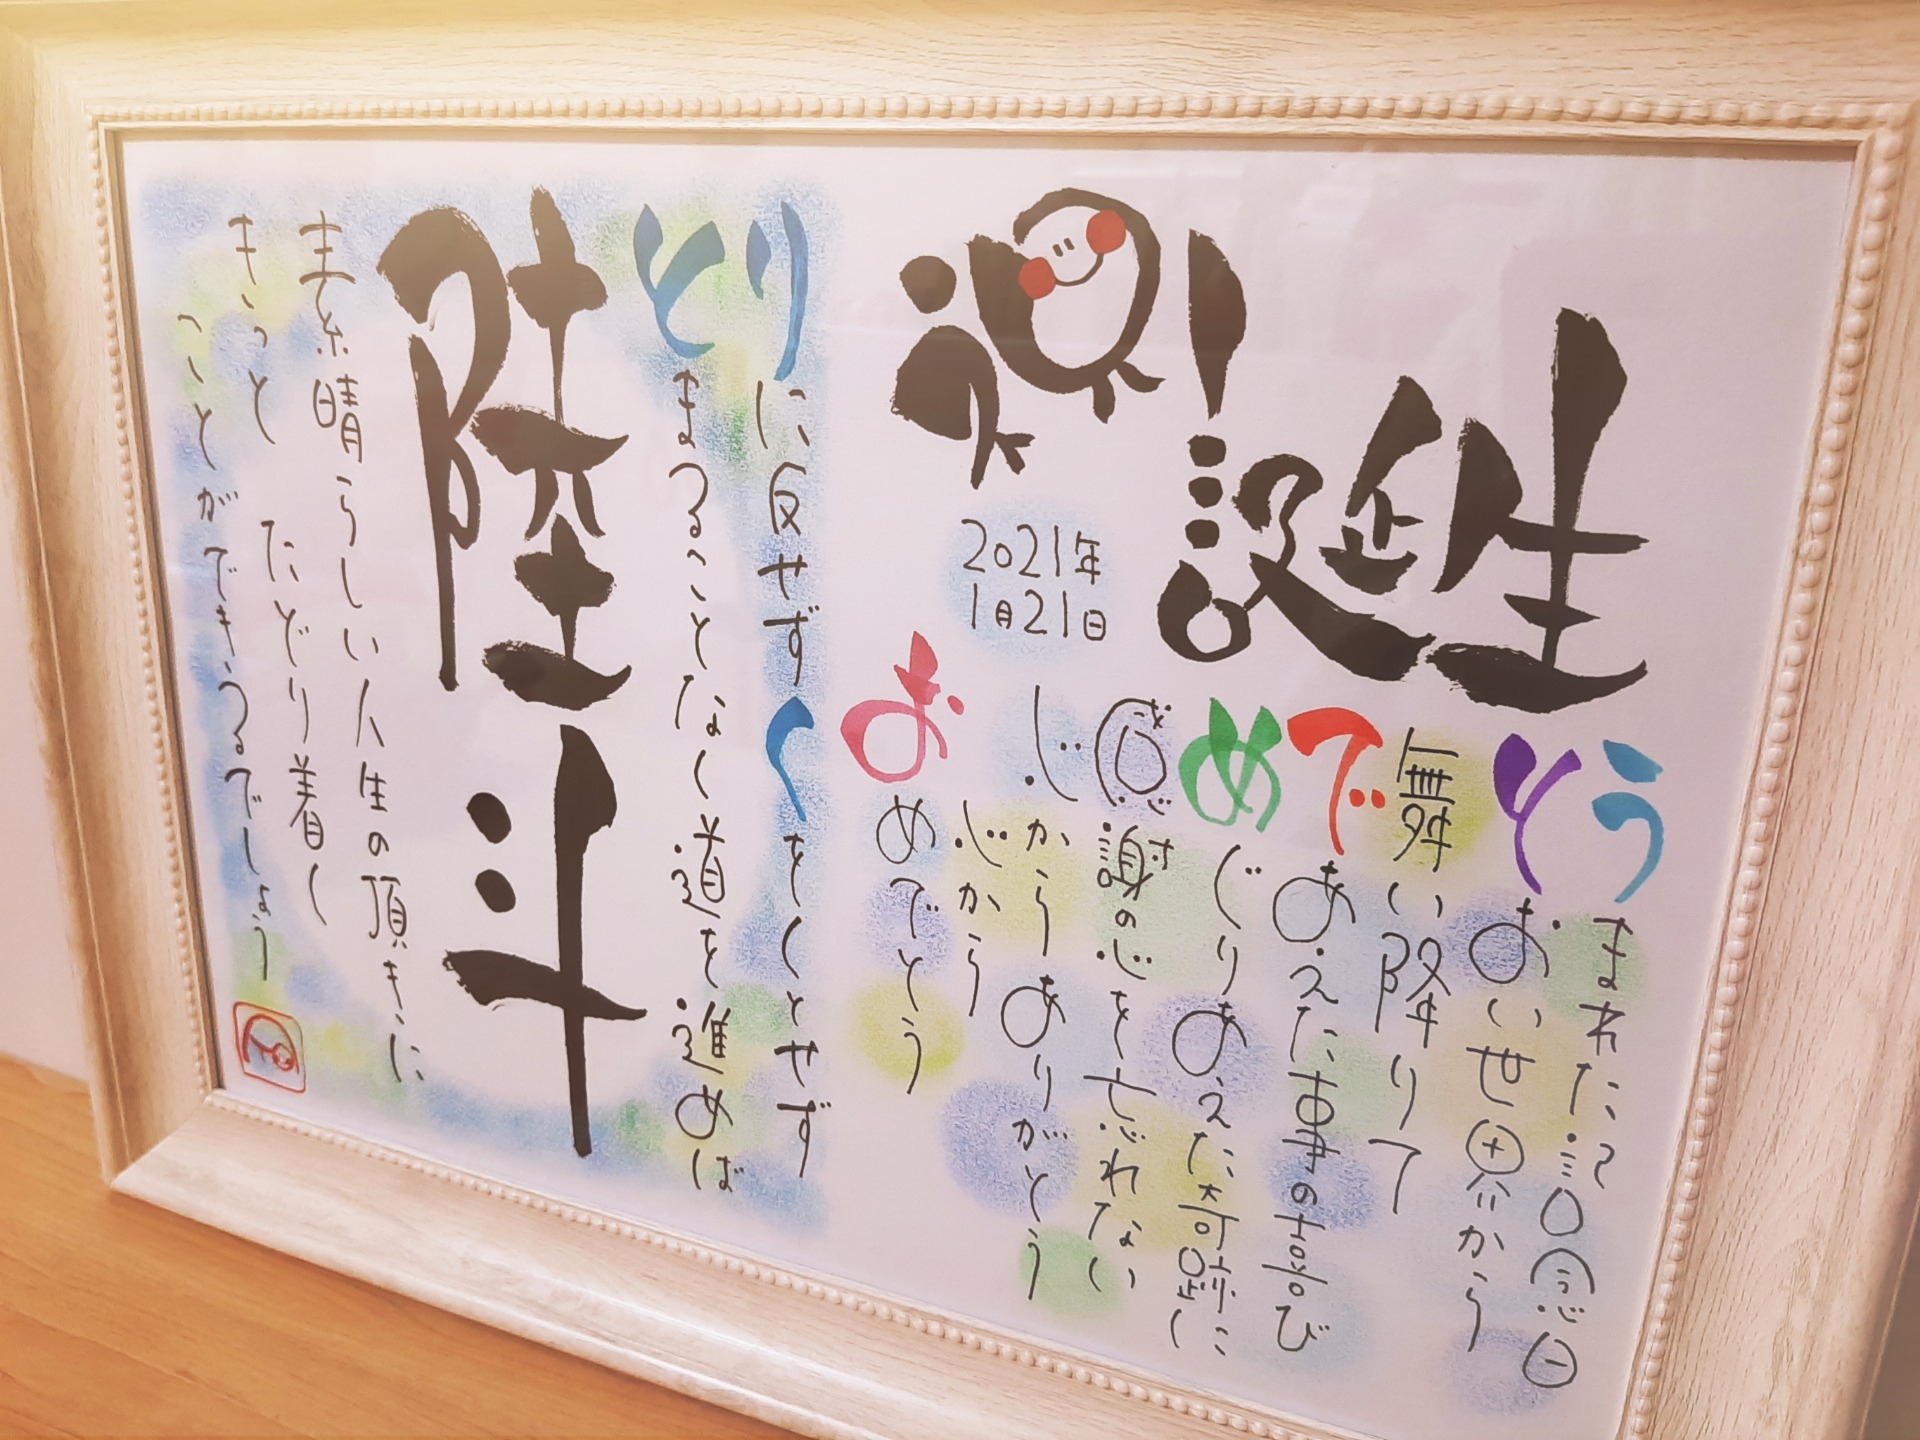 祝!誕生
2021年
1月21日
うまれた記念日
とおい世界から
舞い降りて
であえた事の喜び
めぐりあえた奇跡に
感謝の心を忘れない
心からありがとう
心から
おめでとう
りに反せずくをくとせず
とまることなく道を進めば
陸斗
素晴らしい人生の頂きに
きっとたどり着く
ことができるでしょう